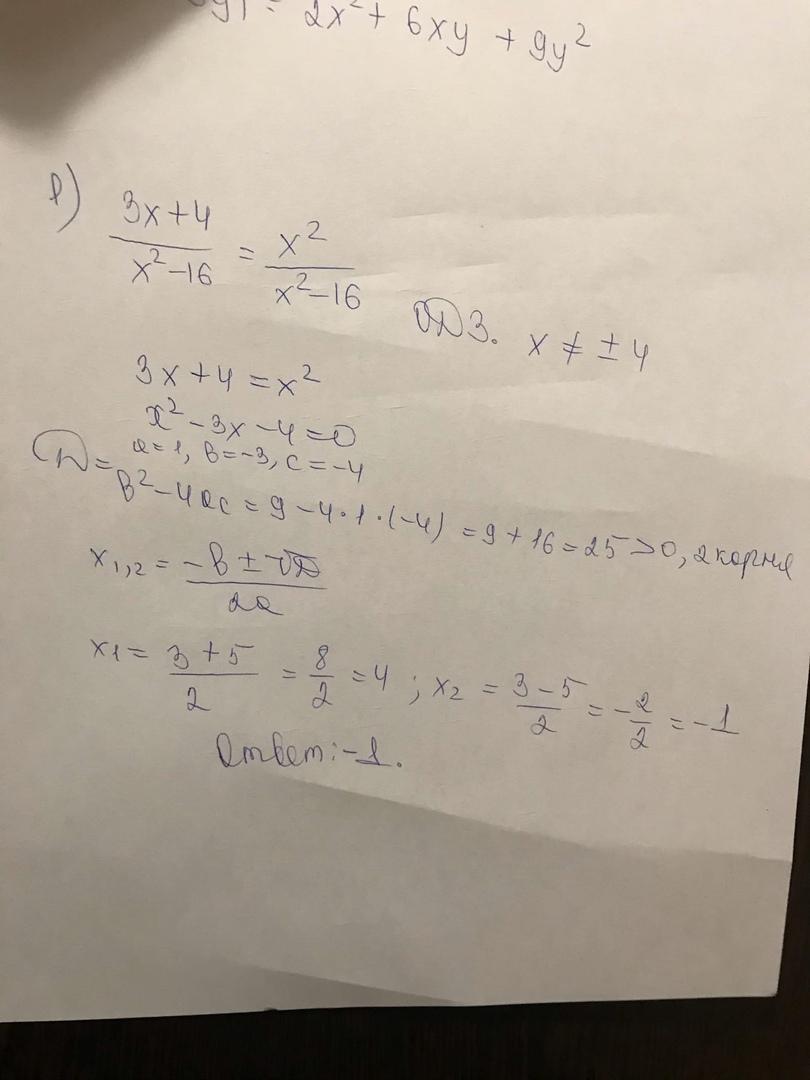 2x² + 6xy + 9y²
1) (3x+4)/(x²-16) = x²/(x²-16) ОДЗ. x ≠ ±4
3x+4 = x²
x² - 3x - 4 = 0
a=1, b=-3, c=-4
D = b² - 4ac = 9 - 4·1·(-4) = 9 + 16 = 25 > 0, 2 корня
x₁,₂ = (-b ± √D)/(2a)
x₁ = (3+5)/2 = 8/2 = 4 ; x₂ = (3-5)/2 = -2/2 = -1
Ответ: -1.